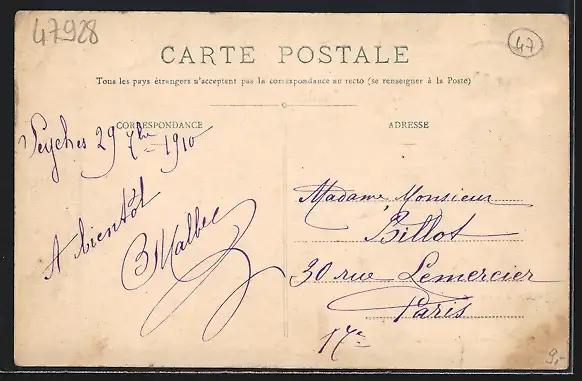 47928
47
CARTE POSTALE
Tous les pays étrangers n'acceptent pas la correspondance au recto (se renseigner à la Poste)
CORRESPONDANCE
Seyches 29 7bre 1910
A bientôt
BMalbec
ADRESSE
Madame, Monsieur
Billot
30 rue Lemercier
Paris
17e
9,-